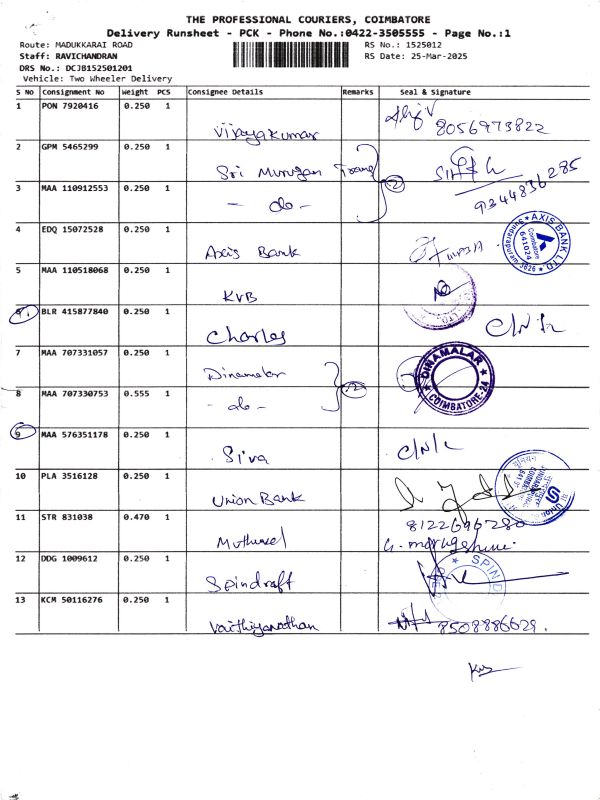 THE PROFESSIONAL COURIERS, COIMBATORE
Delivery Runsheet - PCK - Phone No.:0422-3505555 - Page No.:1
Route: MADUKKARAI ROAD
RS No.: 1525012
Staff: RAVICHANDRAN
RS Date: 25-Mar-2025
DRS No.: DCJB152501201
Vehicle: Two Wheeler Delivery
S No Consignment No Weight PCS Consignee Details Remarks Seal & Signature
1 PON 7920416 0.250 1 Vijayakumar 8056973822
2 GPM 5465299 0.250 1 Sri Murugan Trans
3 MAA 110912553 0.250 1 - do - 2 9344836285
4 EDQ 15072528 0.250 1 Axis Bank AXIS BANK LTD Coimbatore 641024
5 MAA 110518068 0.250 1 KVB
6 BLR 415877840 0.250 1 Charles C/N/L
7 MAA 707331057 0.250 1 Dinamalar DINAMALAR COIMBATORE-24
8 MAA 707330753 0.555 1 - do - 2
9 MAA 576351178 0.250 1 Siva C/N/L
10 PLA 3516128 0.250 1 Union Bank
11 STR 831038 0.470 1 8122696280
12 DDG 1009612 0.250 1 Spindraft SPIND
13 KCM 50116276 0.250 1 Vaithiyanathan 8508886629.